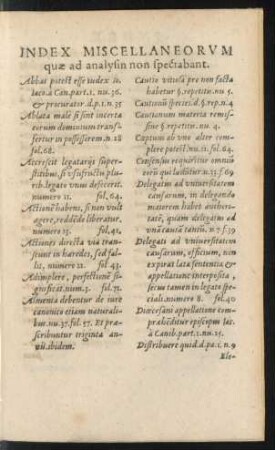 INDEX MISCELLANEORVM
quæ ad analysin non spectabant.
Abbas potest esse iudex in
loco. à Can. part. 1. nu. 36.
& procurator. d. p. 1. n. 35
Ablata male si sint incerta
eorum dominium trans-
fertur in possessorem. n. 28
fol. 68.
Accrescit legatarijs super-
stitibus, si vsufructus plu-
rib. legato vnus defecerit.
numero 21. fol. 64.
Actionē habens, si non vult
agere, reddēdo liberatur,
numero 13. fol. 41.
Actiones directa via tran-
seunt in hæredes, sed fal-
lit, numero 21. fol. 43.
Adimplere, perfectionē si-
gnificat. num. 3. fol. 71.
Alimenta debentur de iure
canonico etiam naturali-
bus. nu. 37. fol. 57. Et præ-
scribuntur triginta an-
nis. ibidem.
Cautio vitiosa pro non facta
habetur §. repetitu. nu. 5.
Cautionū species. d. §. rep. n. 4
Cautionum materia remissi-
ue §. repetitu. nu. 4.
Captum ab vno alter com-
potest. nu. 6.
Consensus requiritur omniū
quibus n. 33. f. 69
Delegatus ad vniuersitatem
causarum, in
maiorem habet authori-
tatē, quàm delegatus ad
vnā causā tantū. n. 7. f. 39
Delegati ad vniuersitatem
causarum, officium, non
expirat lata sententia &
appellatione interposita,
secus tamen in legato spe-
ciali. numero 8. fol. 40
Diœcesani appellatione com-
præhēditur episcopus lo-
ci à Canib. part. 1. nu. 15.
Distribuere quid. d. pa. 1. n. 9
Ele-